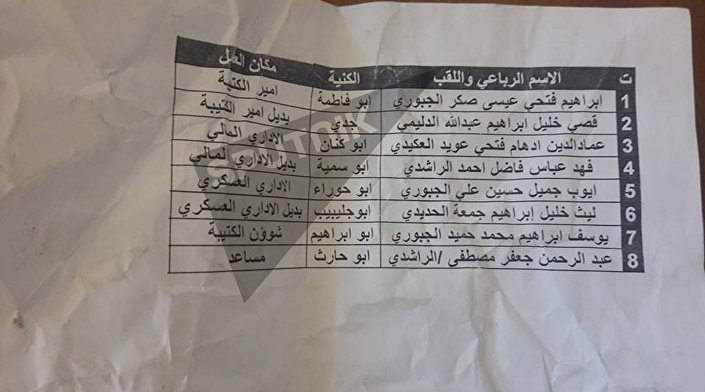 ت الاسم الرباعي واللقب الكنية مكان العمل
1 ابراهيم فتحي عيسى صكر الجبوري ابو فاطمة امير الكتبة
2 قصي خليل ابراهيم عبدالله الدليمي جدي بديل امير الكتيبة
3 عمادالدين ادهام فتحي عويد العكيدي ابو كنان الاداري المالي
4 فهد عباس فاضل احمد الراشدي ابو سمية بديل الاداري المالي
5 ايوب جميل حسين علي الجبوري ابو حوراء الاداري العسكري
6 ليث خليل إبراهيم جمعة الحديدي ابوجليبيب بديل الاداري العسكري
7 يوسف ابراهيم محمد حميد الجبوري ابو ابراهيم شوؤن الكتيبة
8 عبد الرحمن جعفر مصطفى /الراشدي ابو حارث مساعد
SPUTNIK